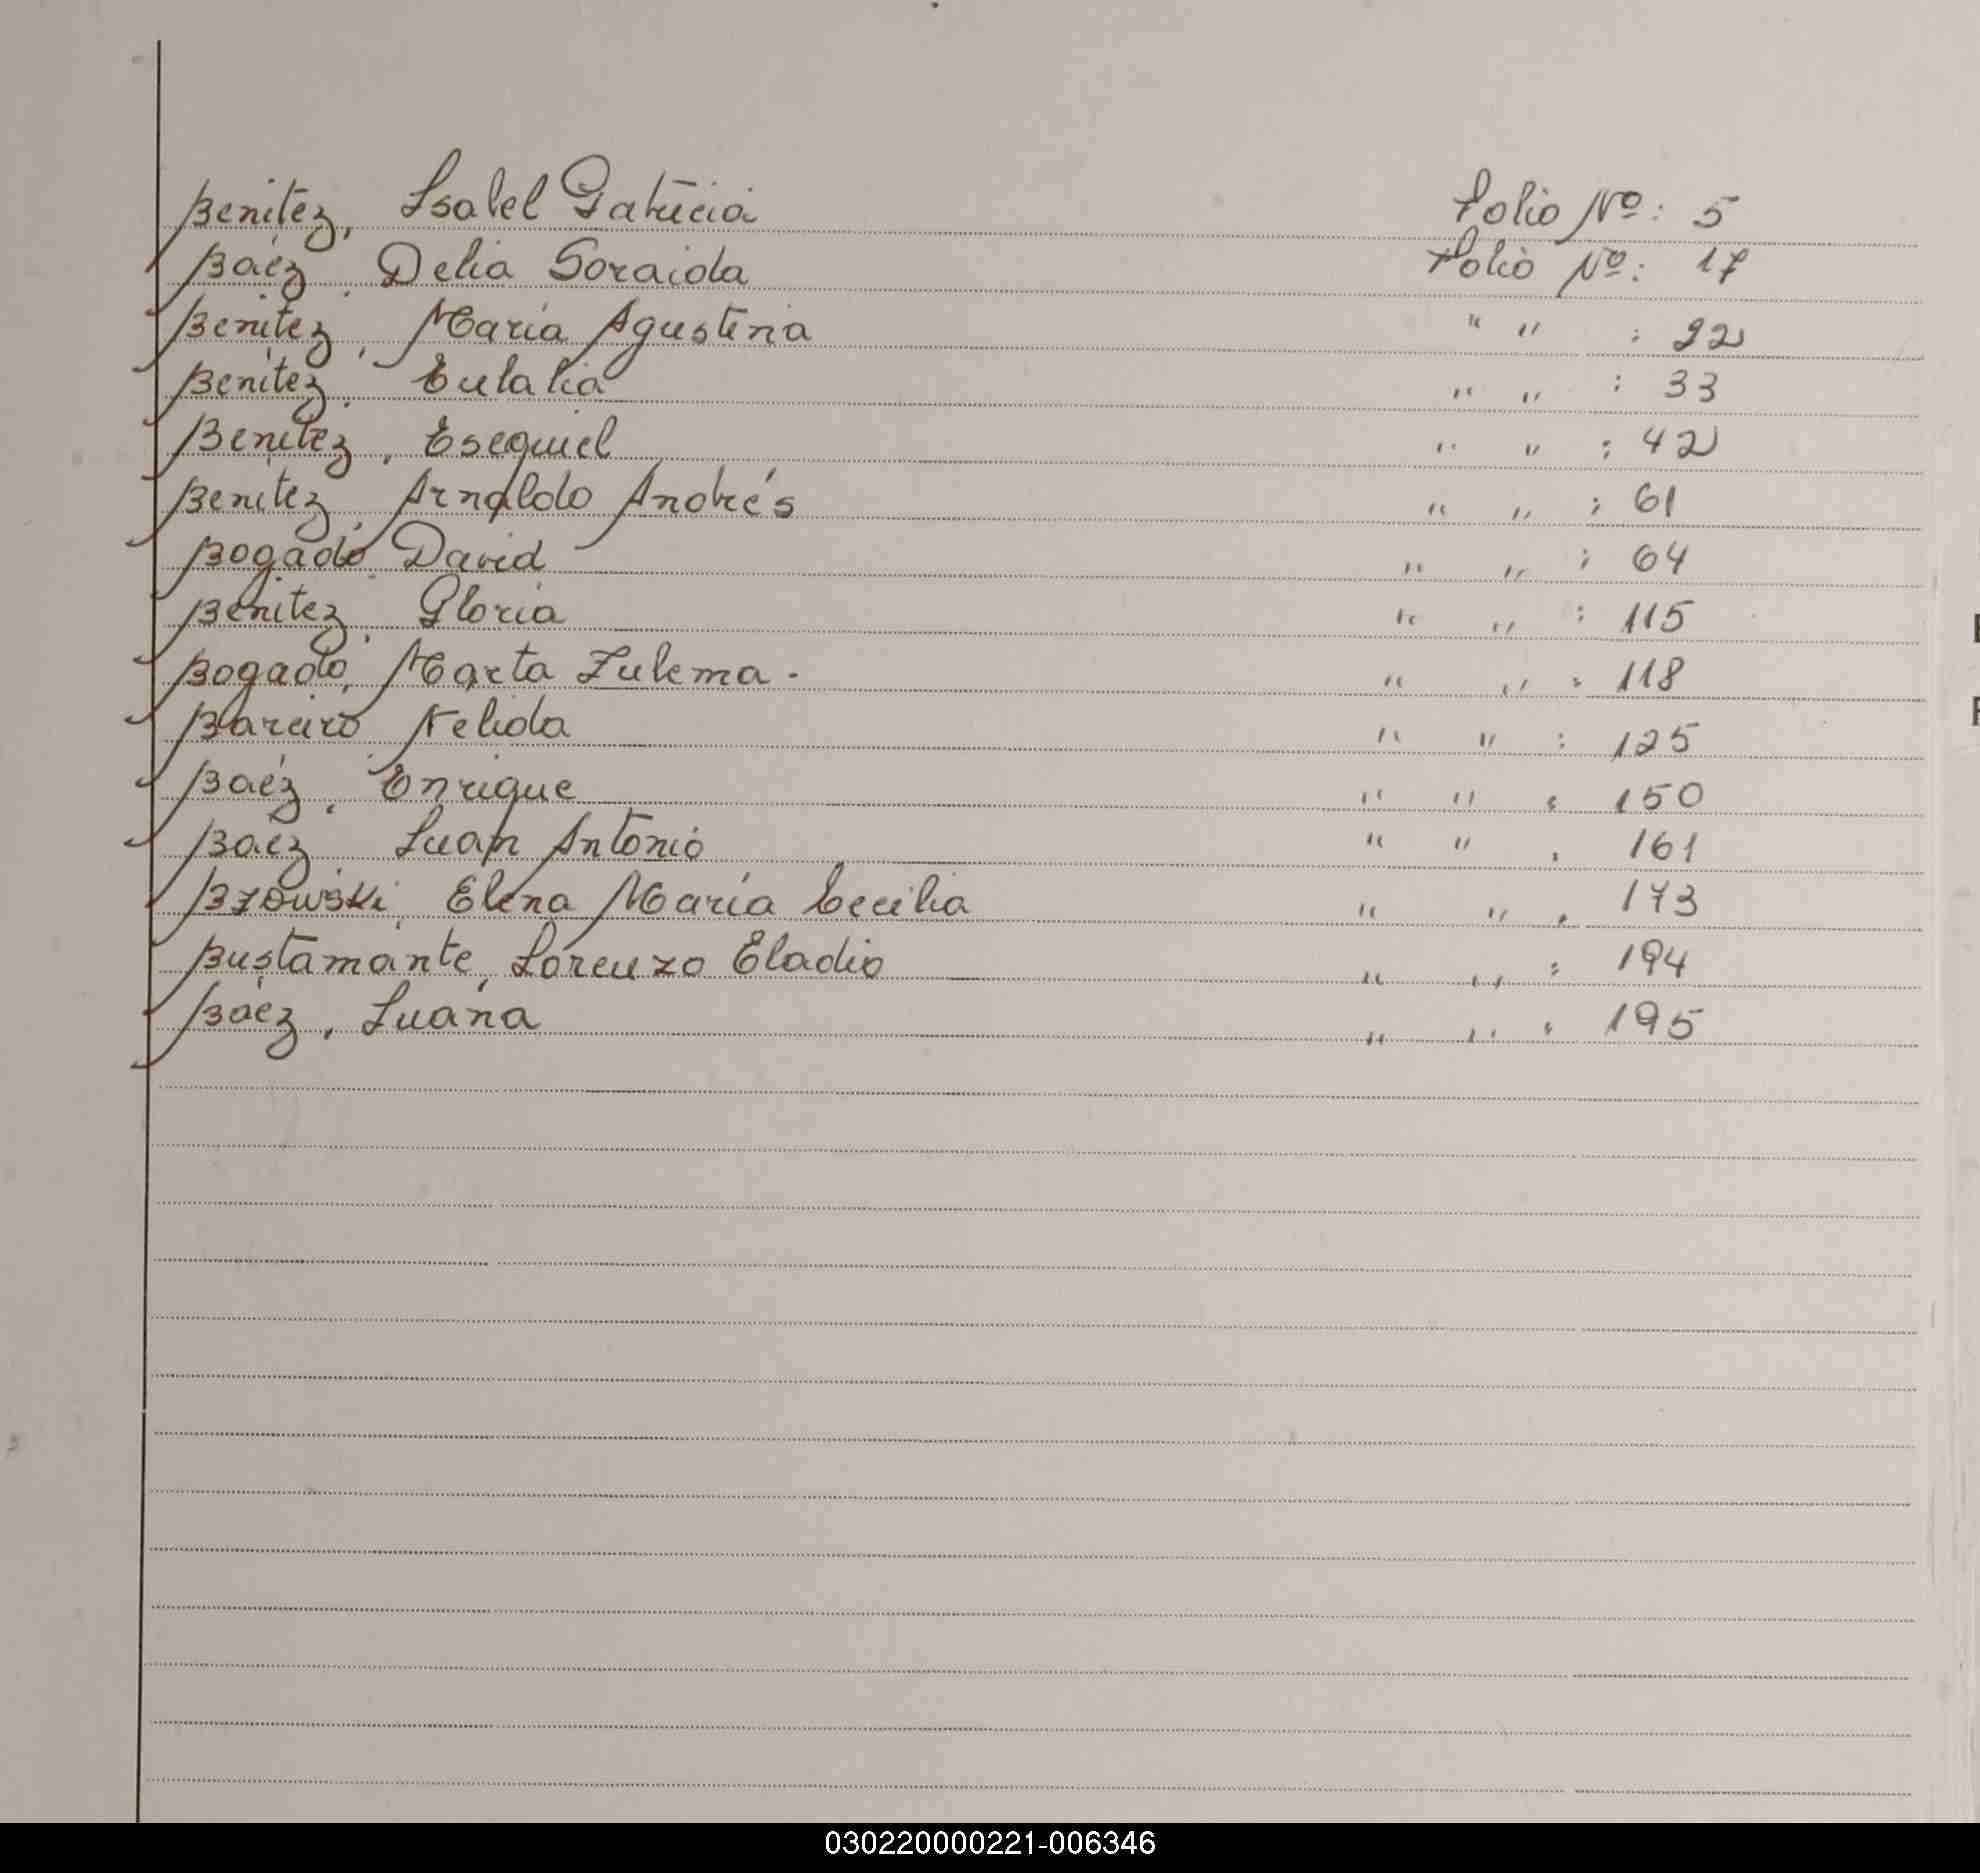 Benítez, Isabel Patricia Folio Nº: 5
Báez, Delia Soraida Folio Nº: 17
Benítez, María Agustina " " : 22
Benítez, Eulalia " " : 33
Benítez, Esequiel " " : 42
Benítez, Arnaldo Andrés " " : 61
Bogado, David " " : 64
Benítez, Gloria " " : 115
Bogado, Marta Zulema. " " : 118
Bareiro, Nelida " " : 125
Baéz, Enrique " " : 150
Baez, Juan Antonio " " . 161
Bzowski, Elena María Cecilia " " . 173
Bustamante, Lorenzo Eladio " " : 194
Báez, Juana " " : 195
030220000221-006346